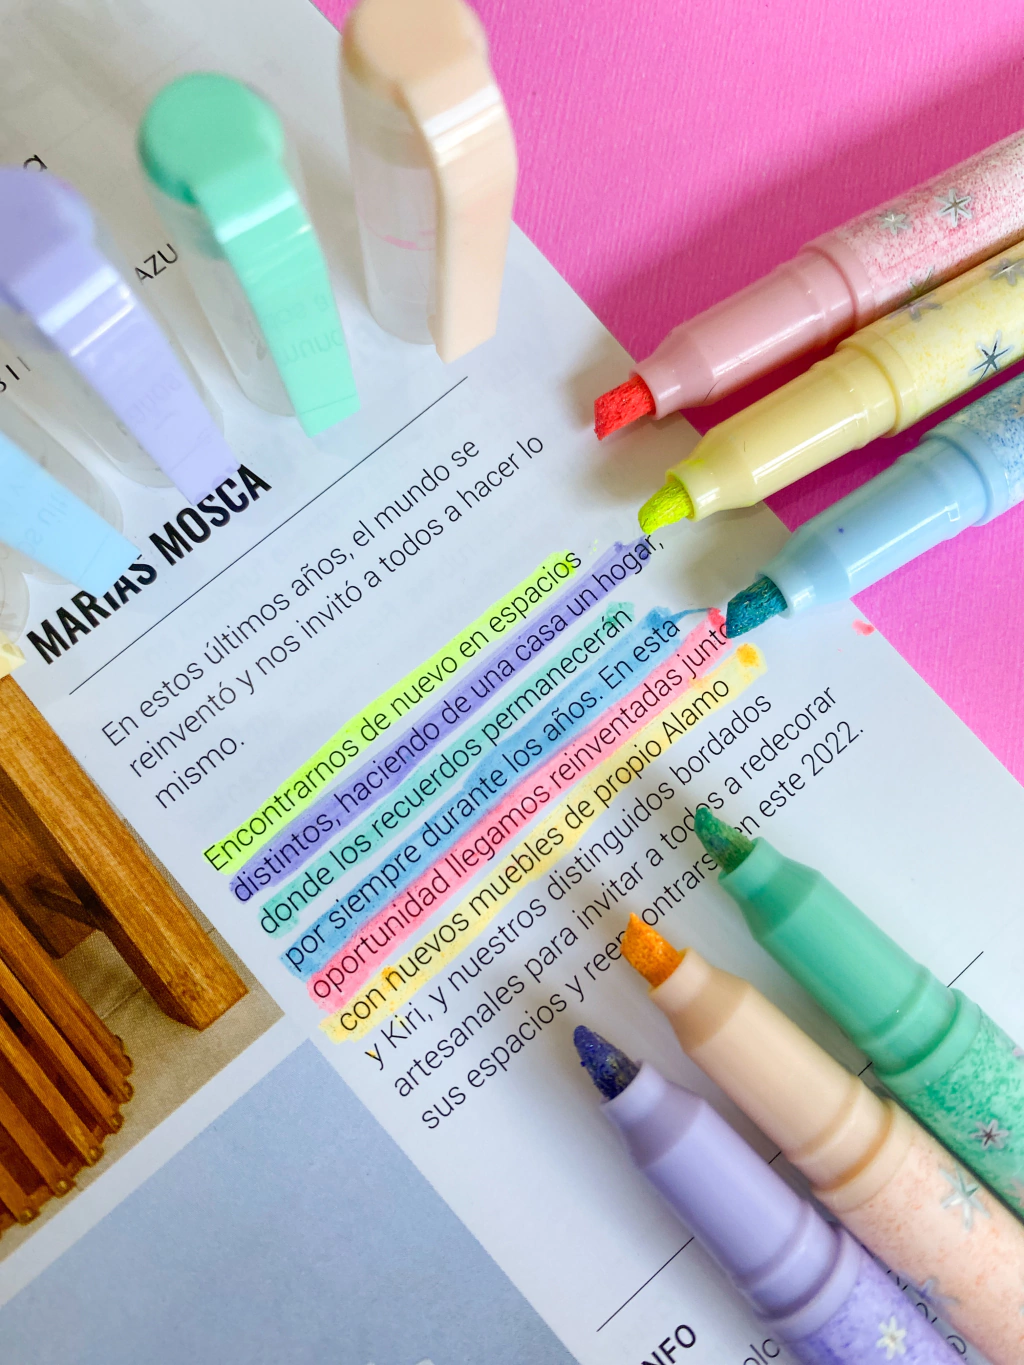 AZU
MARÍAS MOSCA
En estos últimos años, el mundo se
reinventó y nos invitó a todos a hacer lo
mismo.
Encontrarnos de nuevo en espacios
distintos, haciendo de una casa un hogar,
donde los recuerdos permanecerán
por siempre durante los años. En esta
oportunidad llegamos reinventadas junto
con nuevos muebles de propio Alamo
y Kiri, y nuestros distinguidos bordados
artesanales para invitar a todos a redecorar
sus espacios y reencontrarse en este 2022.